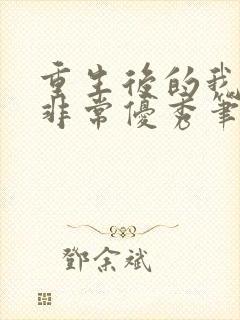 重生後的我
非常優秀筆
鄧余斌